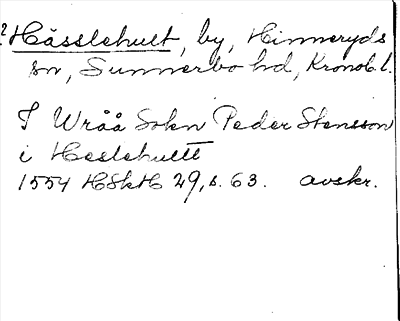 ?Hässlehult, by, Hinneryds
sn, Sunnerbo hd, Kronob. l.
I Wråå Sokn Peder Stensson
i Heslehultt
1554 HSkH 29, s. 63. avskr.